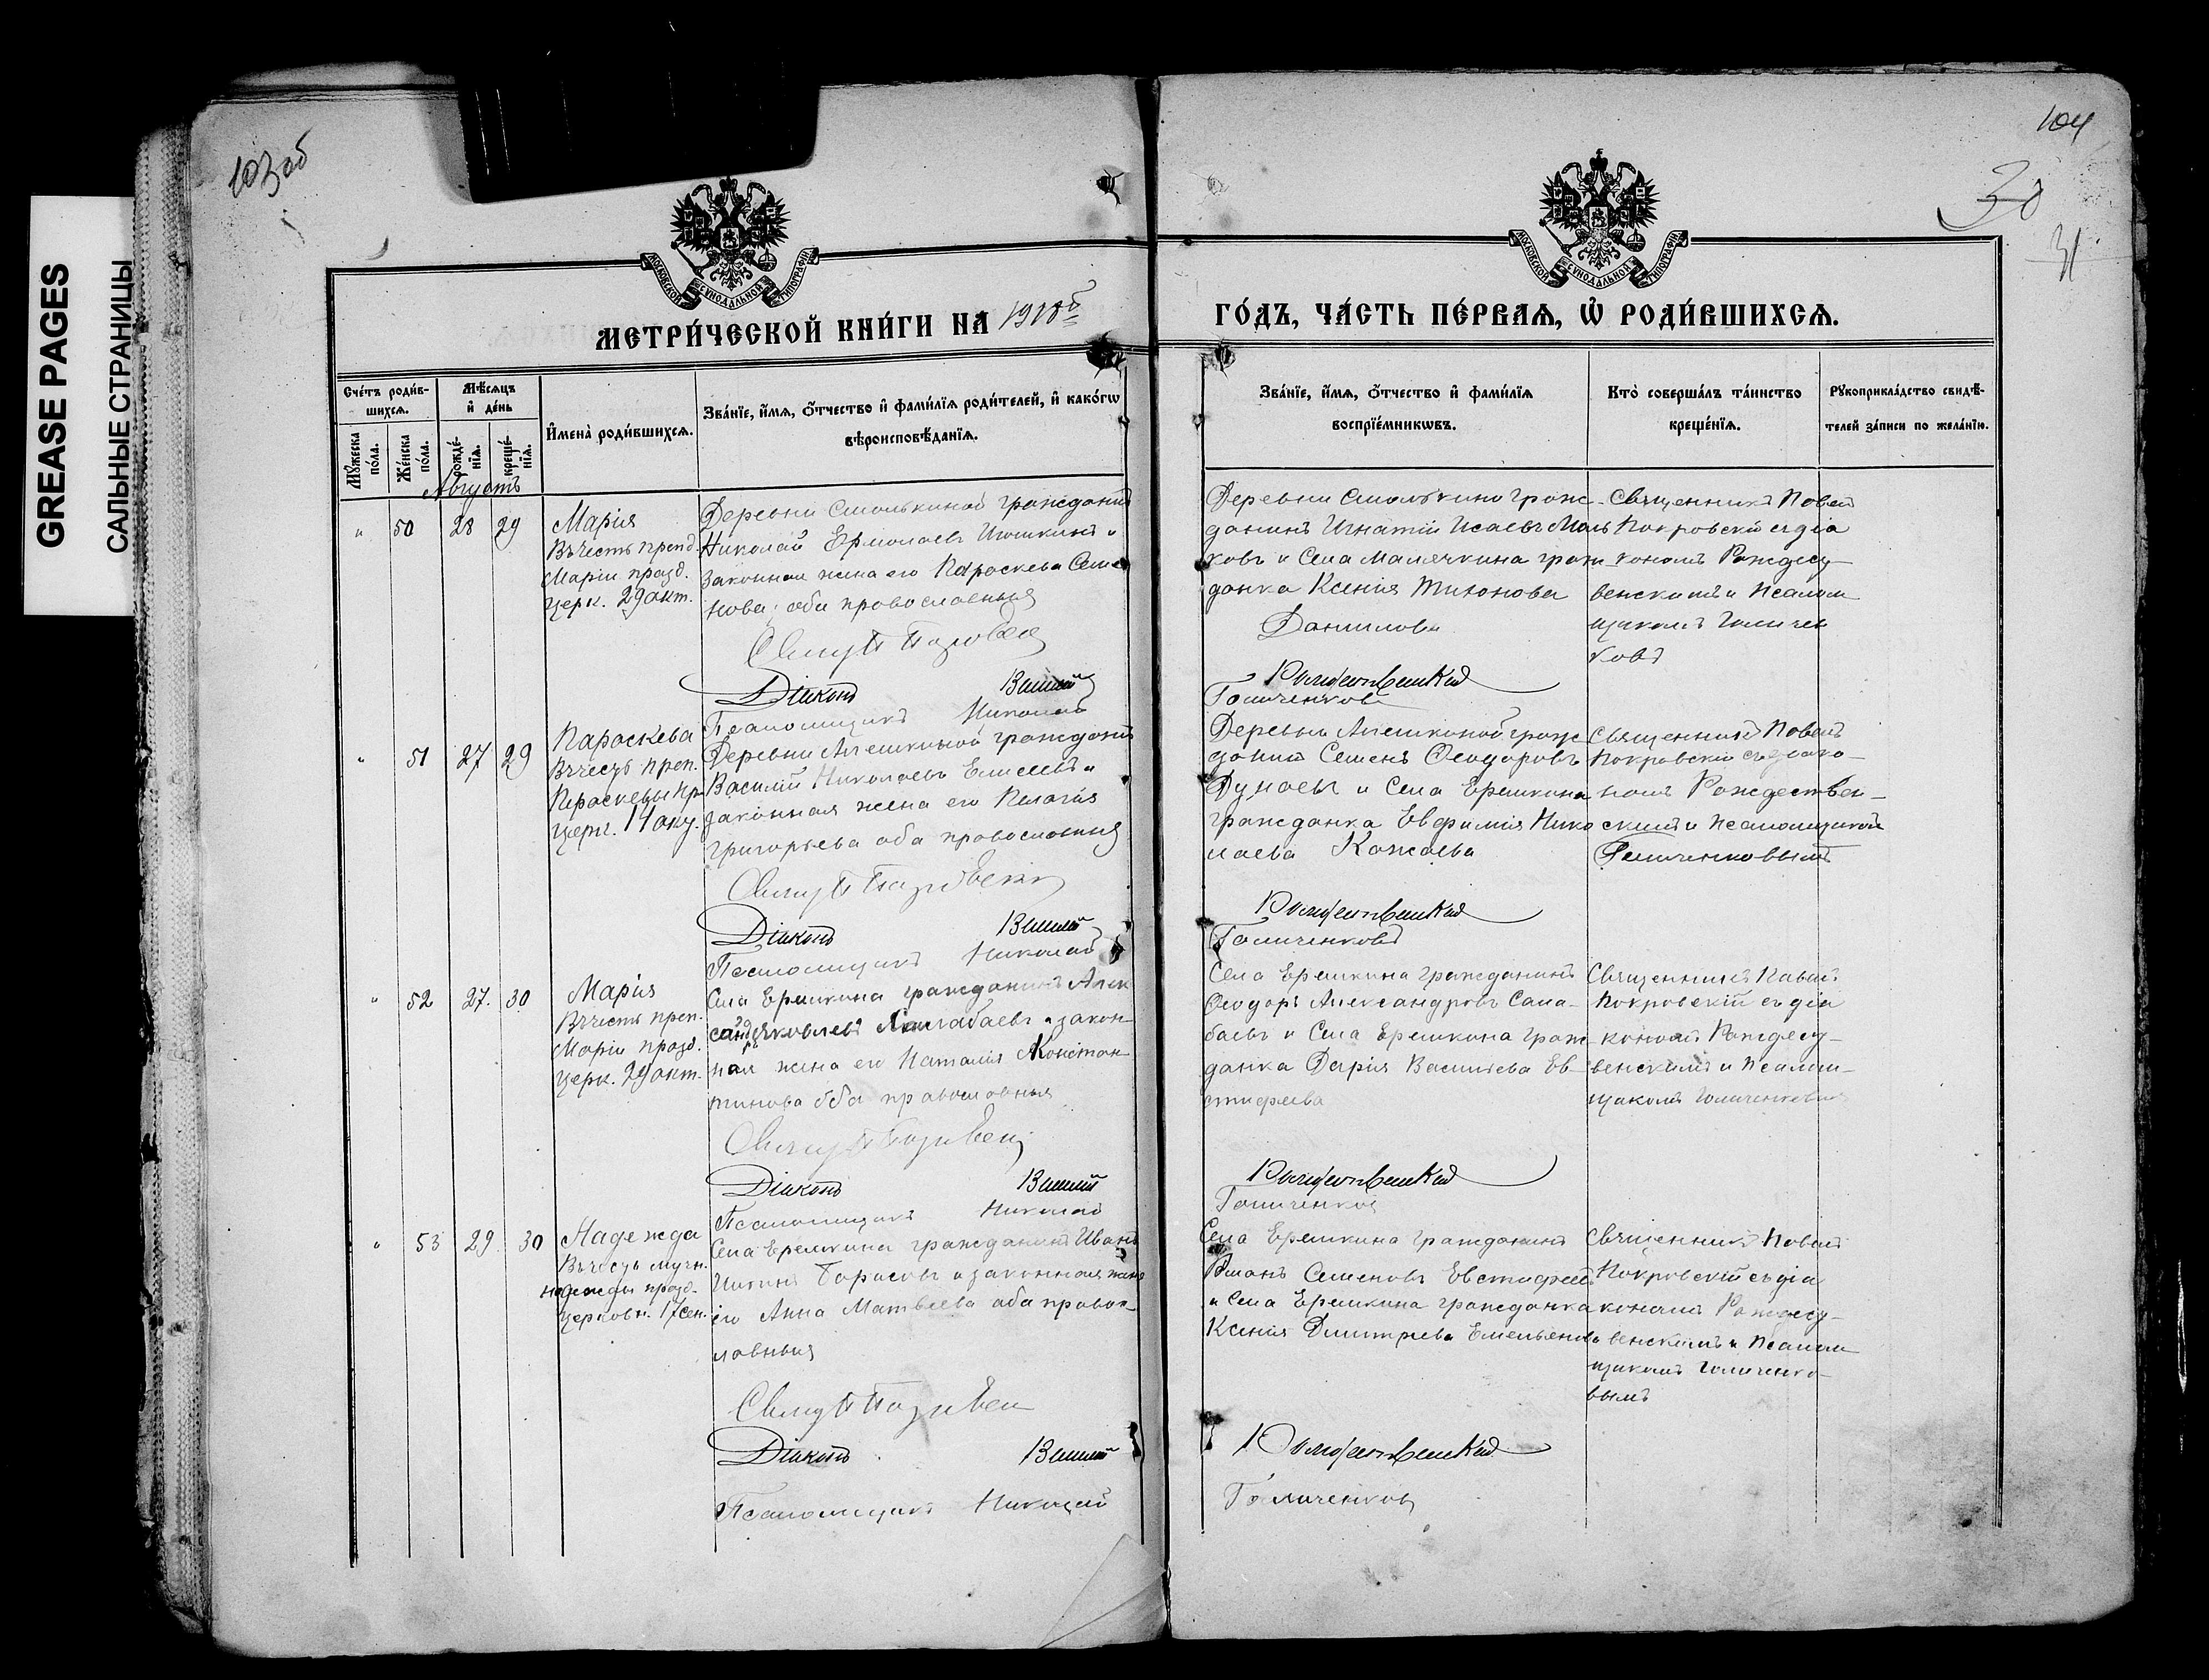 GREASE PAGES
САЛЬНЫЕ СТРАНИЦЫ
103об
104
30
31
МОСКОВСКОЙ СѴНОДАЛЬНОЙ ТИПОГРАФІИ
МОСКОВСКОЙ СѴНОДАЛЬНОЙ ТИПОГРАФІИ
МЕТРИ́ЧЕСКОЙ КНИ́ГИ НА 1918й
ГО́ДЪ, ЧА́СТЬ ПЕ́РВАЯ, Ѡ҆ РОДИ́ВШИХСЯ.
Сче́тъ роди́в-
шихся.
Мꙋжеска по́ла.
Же́нска по́ла.
Мѣ́сяцъ
и҆ де́нь
рожде́-
нїя.
креще́-
нїя.
И҆мена̀ роди́вшихся.
Зва́нїе, и҆́мя, ѻ҆́тчество и҆ фами́лїя роди́телей, и҆ како́гѡ
вѣроисповѣ́данїя.
Зва́нїе, и҆́мя, ѻ҆́тчество и҆ фами́лїя
воспрїе́мникѡвъ.
Кто̀ соверша́лъ та́инство
креще́нїя.
Рꙋкоприкла́дство свидѣ́-
телей за́писи по жела́нїю.
Августъ
" 50 28 29
Марія
Въ честь преп.
Маріи празд.
церк. 29 окт.
Деревни Смолькиной гражданинъ
Николай Ермолаевъ и
законная жена его Параскева Семе
нова; оба православныя
Свящ П Покровскій
Діаконъ Василій
Псаломщикъ Николай
Деревни Смолькино граж-
данинъ Игнатій Исаевъ Маль
ковъ и Села Малячкина граж
данка Ксенія Тихонова
Данилова
Рождественскій
Голиченковъ
Священникъ Павелъ
Покровскій съ діа
кономъ Рождест
венскимъ и Псалом
щикомъ Голичен
ковъ
" 51 27 29
Параскева
Въ честь преп.
Параскевы пр.
церк. 14 окт.
Деревни Алешкиной гражданинъ
Василій Николаевъ Елисеевъ и
законная жена его Пелагія
Григорьева оба православныя
Свящ П Покровскій
Діаконъ Василій
Псаломщикъ Николай
Деревни Алешкиной граж
данинъ Семенъ Ѳеодоровъ
Дунаевъ и Села Еремкина
гражданка Евфимія Нико
лаева Кажаева
Рождественскій
Голиченковъ
Священникъ Павелъ
Покровскій съ діако-
номъ Рождествен-
скимъ и псаломщикомъ
Голиченковымъ
" 52 27. 30
Марія
Въ честь преп.
Маріи празд.
церк. 29 окт.
Села Еремкина гражданинъ Алек
сандръ Яковлевъ Салабаевъ и закон-
ная жена его Наталія Констан-
тинова оба православныя
Свящ П Покровскій
Діаконъ Василій
Псаломщикъ Николай
Села Еремкина гражданинъ
Ѳеодоръ Александровъ Сала-
баевъ и Села Еремкина граж-
данка Дарія Васильева Ев-
стифеева
Рождественскій
Голиченковъ
Священникъ Павелъ
Покровскій съ діа
кономъ Рождест-
венскимъ и Псалом-
щикомъ Голиченковымъ
" 53 29 30
Надежда
Въ честь мучн.
Надежды празд.
церковн. 17 сен.
Села Еремкина гражданинъ Иванъ
Борисовъ и законная жена
его Анна Матвеева оба правос-
лавныя
Свящ П Покровскій
Діаконъ Василій
Псаломщикъ Николай
Села Еремкина гражданинъ
Романъ Семеновъ Евстифеевъ
и Села Еремкина гражданка
Ксенія Дмитріева Емельянова
Рождественскій
Голиченковъ
Священникъ Павелъ
Покровскій съ діа
кономъ Рождест-
венскимъ и Псалом
щикомъ Голиченко-
вымъ